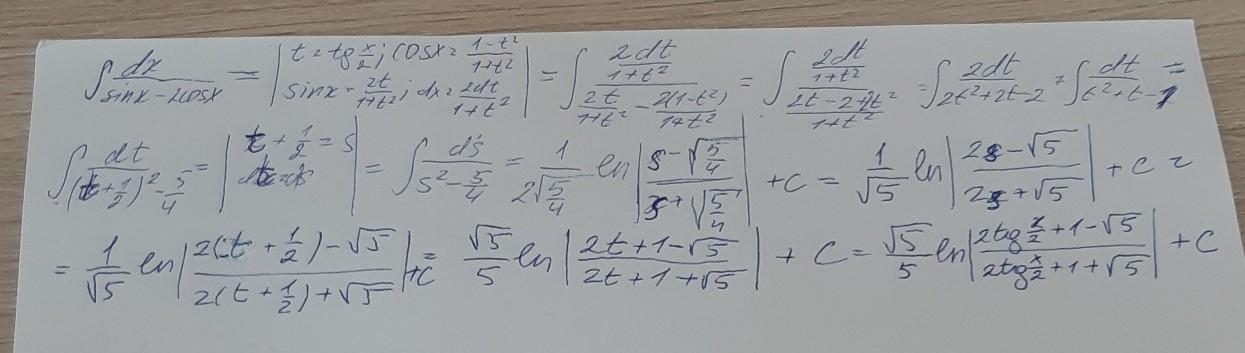 ∫ dx/(sinx − 2cosx) = | t = tg x/2 ; cosx = (1−t²)/(1+t²) sinx = 2t/(1+t²) ; dx = 2dt/(1+t²) | = ∫ (2dt/(1+t²))/(2t/(1+t²) − 2(1−t²)/(1+t²)) = ∫ (2dt/(1+t²))/((2t−2+2t²)/(1+t²)) = ∫ 2dt/(2t²+2t−2) = ∫ dt/(t²+t−1) =
∫ dt/((t+1/2)²−5/4) = | t + 1/2 = s dt = ds | = ∫ ds/(s²−5/4) = 1/(2√(5/4)) ln |(s−√(5/4))/(s+√(5/4))| + c = 1/√5 ln |(2s−√5)/(2s+√5)| + c =
= 1/√5 ln |(2(t+1/2)−√5)/(2(t+1/2)+√5)| + c = √5/5 ln |(2t+1−√5)/(2t+1+√5)| + C = √5/5 ln |(2tg x/2 +1−√5)/(2tg x/2 +1+√5)| + C